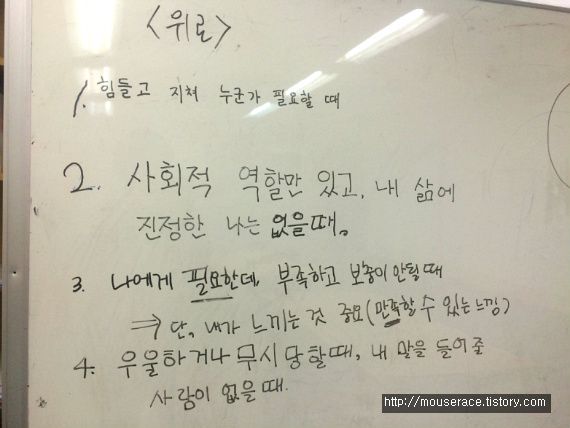 <위로>
1. 힘들고 지쳐 누군가 필요할 때
2. 사회적 역할만 있고, 내 삶에
진정한 나는 없을때。
3. 나에게 필요한데, 부족하고 보충이 안될때
⇒ 단, 내가 느끼는 것 중요(만족할 수 있는 느낌)
4. 우울하거나 무시당할때, 내 말을 들어줄
사람이 없을때.
http://mouserace.tistory.com